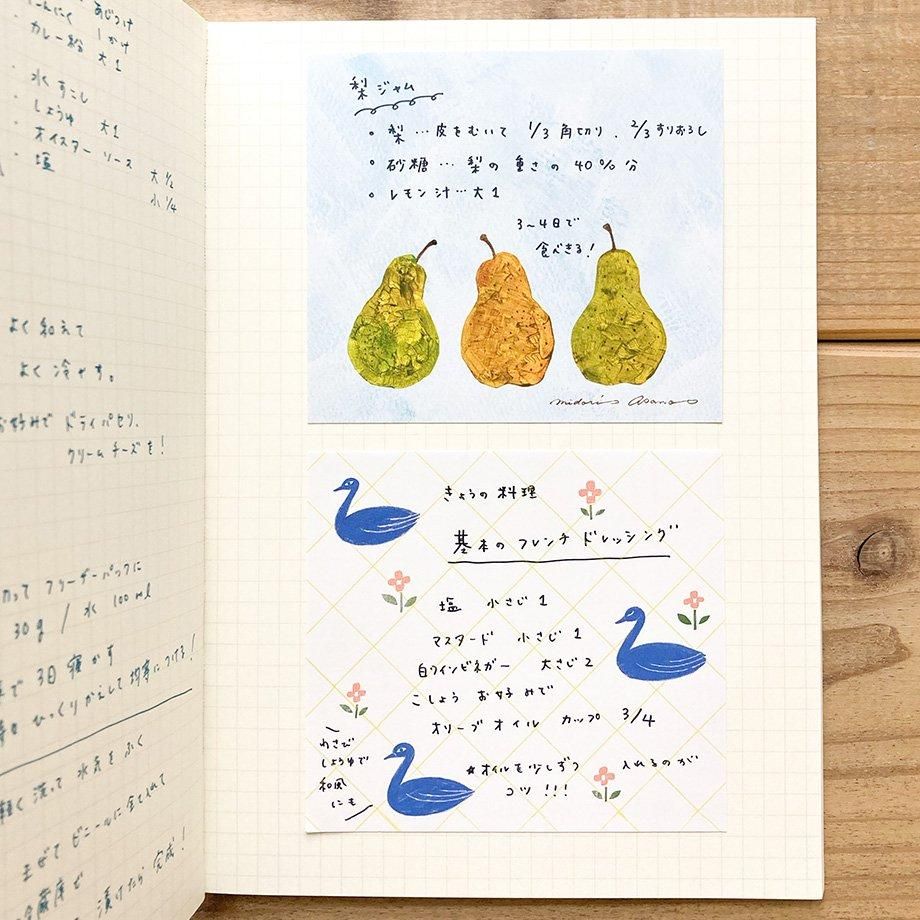 にんにく 1かけ
・カレー粉 大1
・水 すこし
・しょうゆ 大1
・オイスターソース 大1/2
・塩 小1/4
よく和えて
よく冷やす。
お好みで ドライパセリ、
クリームチーズを!
フリーザーパックに
30g / 水 100ml
で 3日 寝かす
ひっくりかえして 均等につける!
軽く 洗って 水気を ふく
まぜて ビニールに 全て入れて
冷蔵庫で
漬けたら 完成!
梨ジャム
梨…皮をむいて 1/3 角切り、2/3 すりおろし
砂糖…梨の重さの 40%分
レモン汁…大1
3〜4日で
食べきる!
midori asano
きょうの料理
基本の フレンチ ドレッシング
塩 小さじ 1
マスタード 小さじ 1
白ワインビネガー 大さじ 2
こしょう お好みで
オリーブオイル カップ 3/4
わさび
しょうゆで
和風
にも
★オイルを少しずつ 入れるのが
コツ!!!